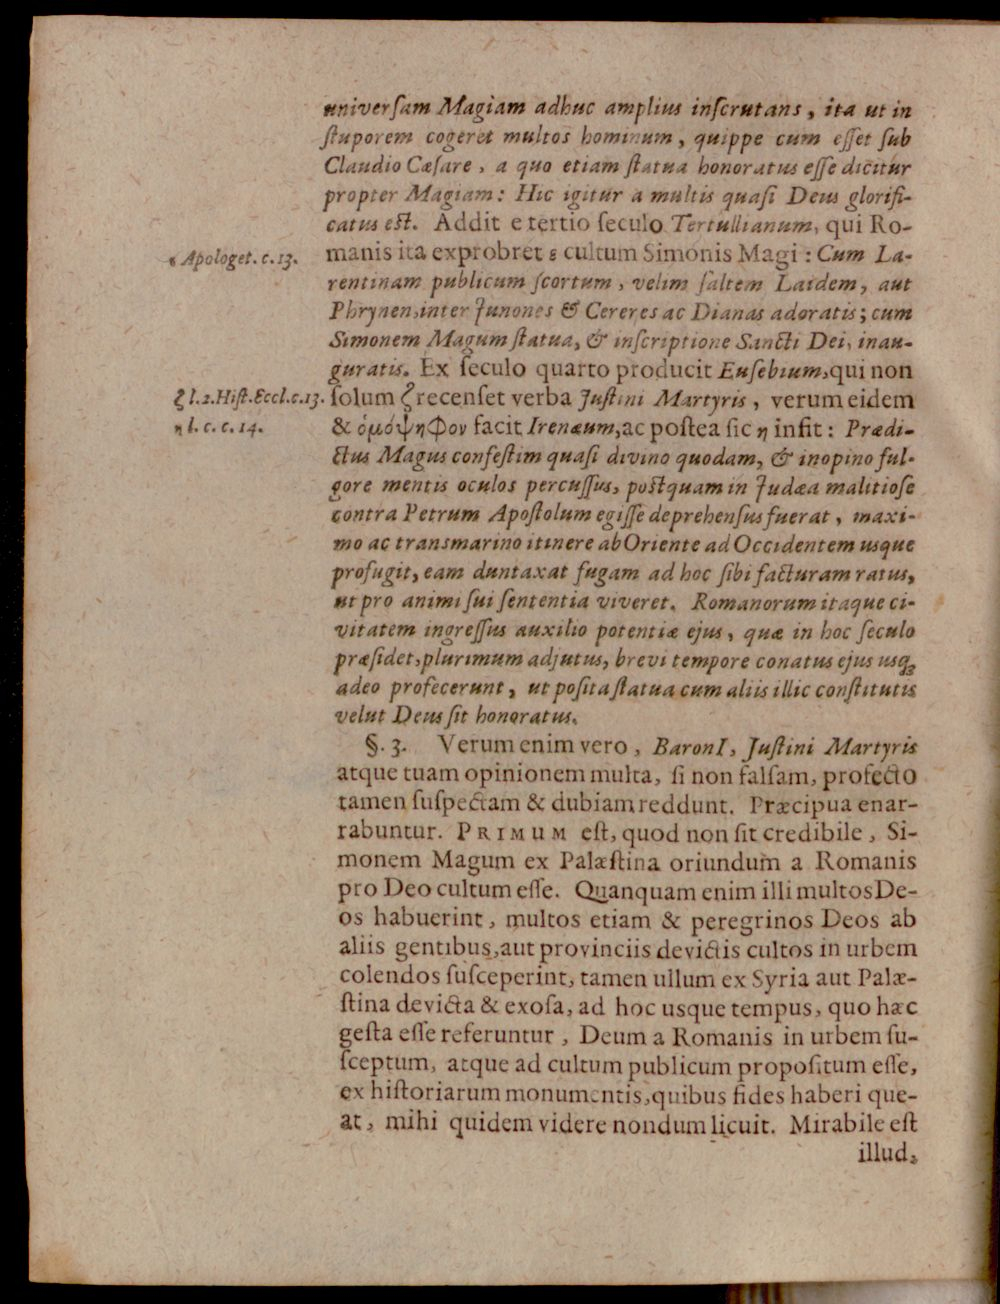 universam Magiam adhuc amplius inscrutans, ita ut in
stuporem cogeret multos hominum, quippe cum esset sub
Claudio Cæsare, a quo etiam statua honoratus esse dicitur
propter Magiam: Hic igitur a multis quasi Deus glorifi-
catus est. Addit e tertio seculo Tertullianum, qui Ro-
ε Apologet. c. 13. manis ita exprobret ε cultum Simonis Magi: Cum La-
rentinam publicum scortum, velim saltem Laidem, aut
Phrynen, inter Junones & Cereres ac Dianas adoratis; cum
Simonem Magum statua, & inscriptione Sancti Dei, inau-
guratis. Ex seculo quarto producit Eusebium, qui non
ζ l. 2. Hist. Eccl. c. 13. solum ζ recenset verba Justini Martyris, verum eidem
η l. c. c. 14. & ὁμόψηφον facit Irenæum, ac postea sic η infit: Prædi-
ctus Magus confestim quasi divino quodam, & inopino ful-
gore mentis oculos percussus, postquam in Judæa malitiose
contra Petrum Apostolum egisse deprehensus fuerat, maxi-
mo ac transmarino itinere ab Oriente ad Occidentem usque
profugit, eam duntaxat fugam ad hoc sibi facturam ratus,
ut pro animi sui sententia viveret. Romanorum itaque ci-
vitatem ingressus auxilio potentiæ ejus, quæ in hoc seculo
præsidet, plurimum adjutus, brevi tempore conatus ejus usqꝫ
adeo profecerunt, ut posita statua cum aliis illic constitutis
velut Deus sit honoratus.
§. 3. Verum enim vero, BaronI, Justini Martyris
atque tuam opinionem multa, si non falsam, profecto
tamen suspectam & dubiam reddunt. Præcipua enar-
rabuntur. PRIMUM est, quod non sit credibile, Si-
monem Magum ex Palæstina oriundum a Romanis
pro Deo cultum esse. Quanquam enim illi multos De-
os habuerint, multos etiam & peregrinos Deos ab
aliis gentibus, aut provinciis devictis cultos in urbem
colendos susceperint, tamen ullum ex Syria aut Palæ-
stina devicta & exosa, ad hoc usque tempus, quo hæc
gesta esse referuntur, Deum a Romanis in urbem su-
sceptum, atque ad cultum publicum propositum esse,
ex historiarum monumentis, quibus fides haberi que-
at, mihi quidem videre nondum licuit. Mirabile est
illud,